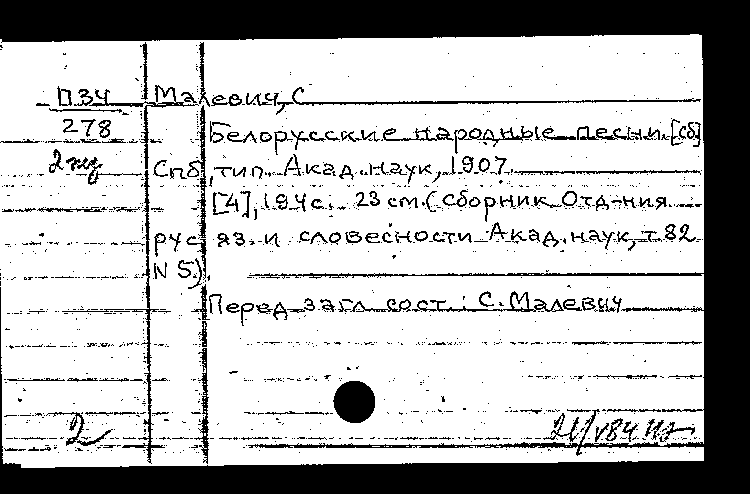 П34 Малевич, С
278 Белорусские народные песни. [Сб]
2 экз Спб, тип. Акад. наук, 1907.
[4], 194 с. 23 см. (Сборник Отд-ния
рус. яз. и словесности Акад. наук, т 82
N 5.).
Перед загл. сост.: С. Малевич
2